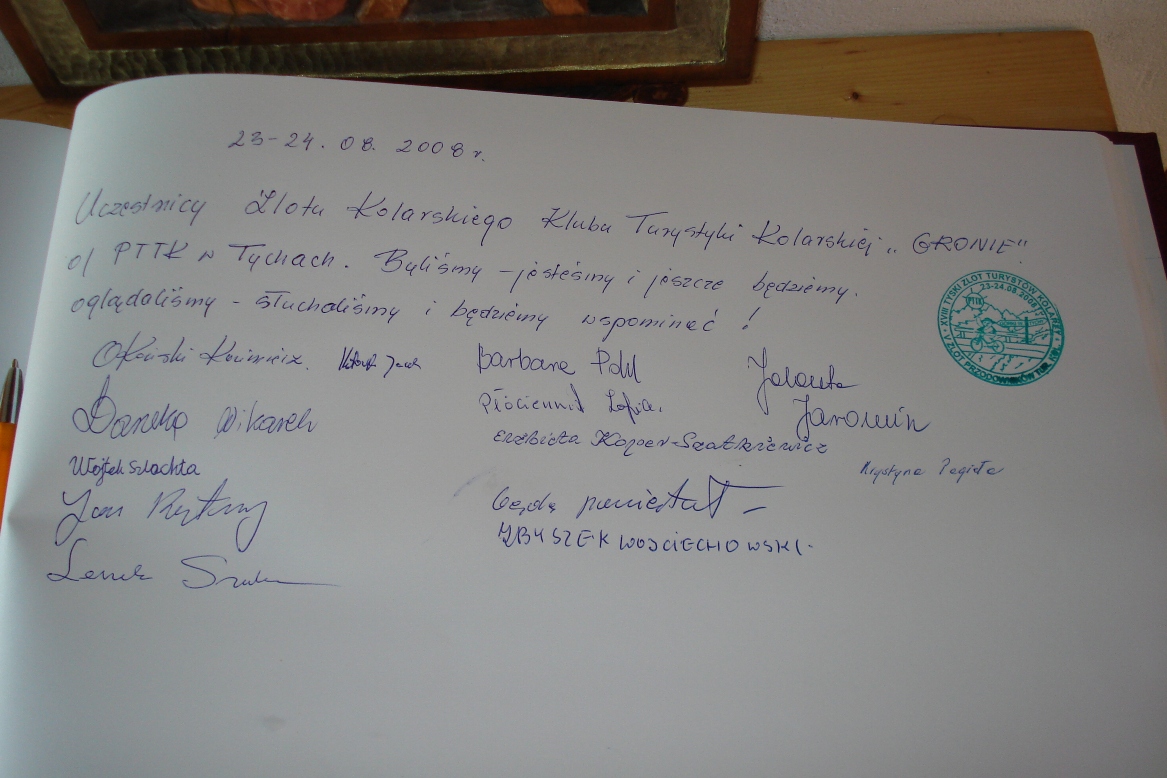 23-24. 08. 2008 r.
Uczestnicy Zlotu Kolarskiego Klubu Turystyki Kolarskiej „GRONIE"
o/ PTTK w Tychach. Byliśmy - jesteśmy i jeszcze będziemy.
oglądaliśmy - słuchaliśmy i będziemy wspominać !
XVIII TYSKI ZLOT TURYSTÓW KOLARZY
23-24.08.2008
V ZLOT PRZODOWNIKÓW TUR. KOL.
Barbara Pohl
Jolanta
Jaromin
Płóciennik Zofia.
Danuta
Elżbieta Koper-Szatkiewicz
Wojtek Szlachta
Krystyna
Jan
będę pamiętał
ZBYSZEK WOJCIECHOWSKI.